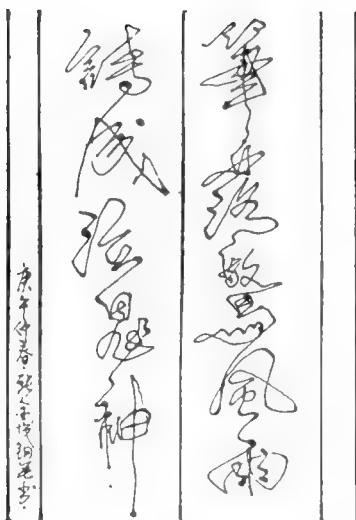 筆落驚風雨
詩成泣鬼神
庚午仲春 鋼筆書